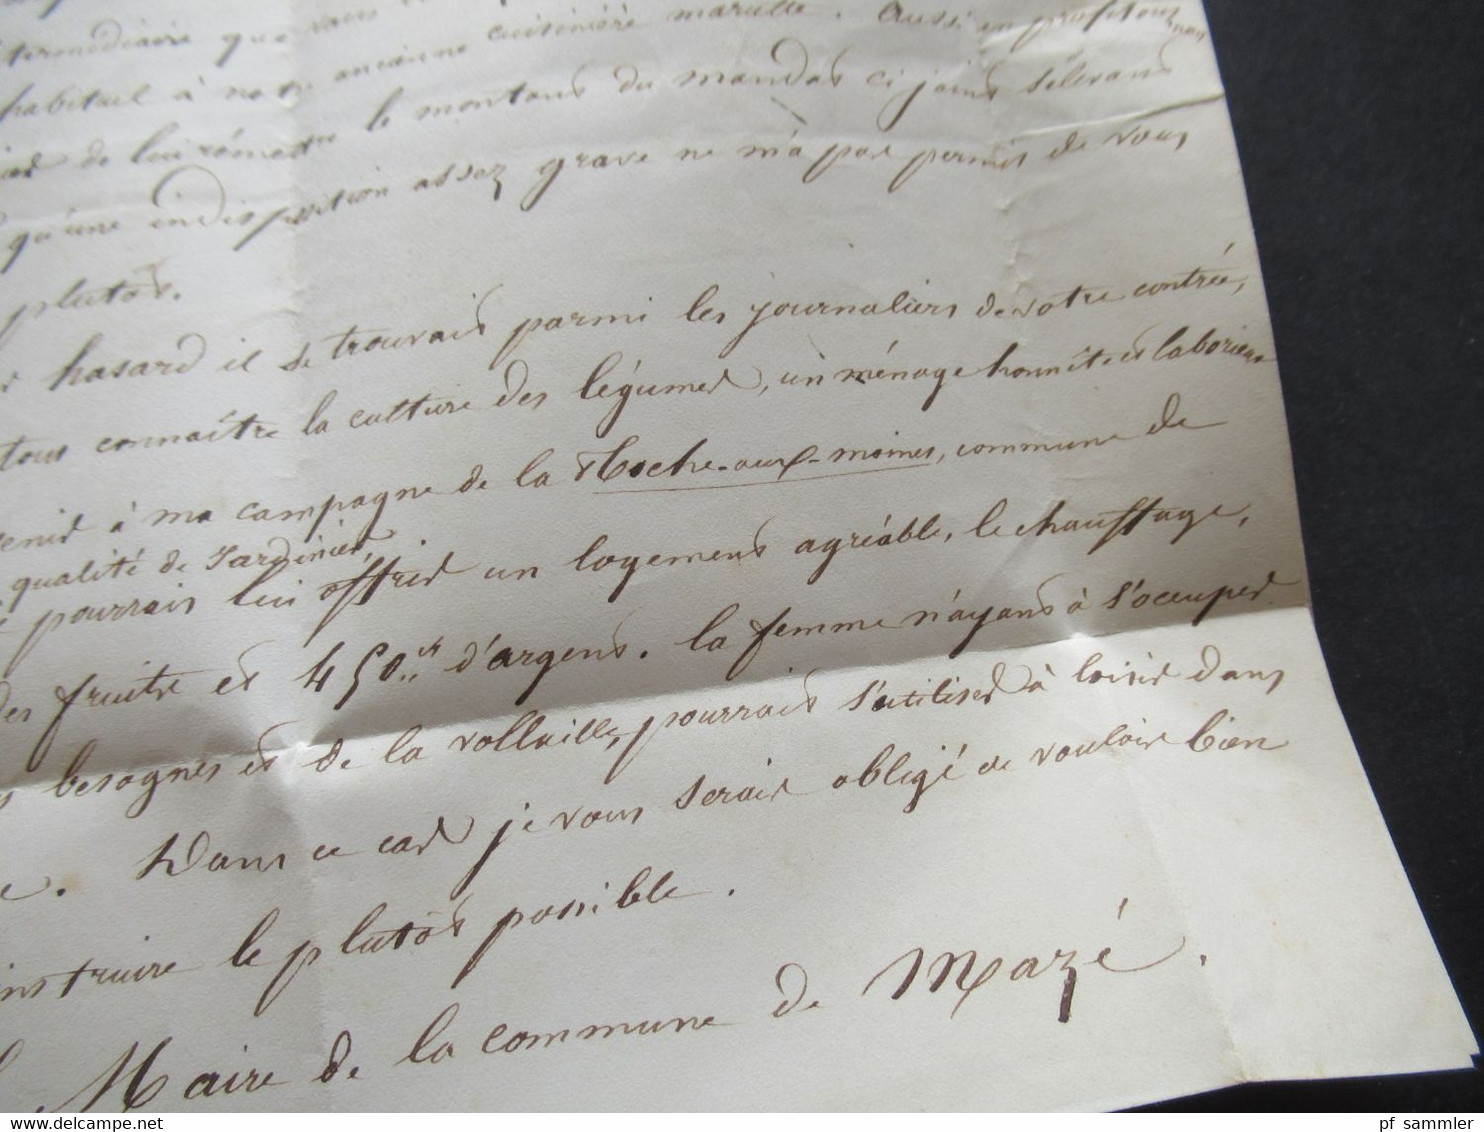 termédiaire que vous
habituel à notre ancienne cuisinière maralle. Aussi en profitons nous
de lui réméttre le montans du mandas ci joins Sélevans
qu'une indisposition assez grave ne m'a pas permis de vous
plutôs.
hasard il se trouvais parmi les journaliers de votre contrée,
tous connaître la culture des légumes, un ménage honnête es laborieux
venir à ma campagne de la Roche-aux-moines, commune de
qualité de Jardinier,
pourrais lui offrir un logemens agréable, le chauffage,
des fruits es 450fr d'argens. la femme n'ayans à s'occuper
besognes es de la vollaille, pourrais s'utiliser à loisir dans
Dans ce cas je vous serais obligé de vouloir bien
instruire le plutôs possible.
Maire de la commune de Mazé.
pf_sammler